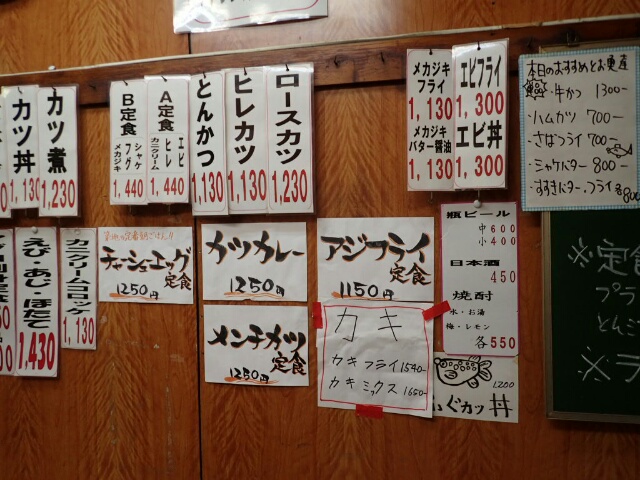 カツ丼
1,130
カツ煮
1,230
B定食
シャケ
フグ
メカジキ
1,440
A定食
エビ
ヒレ
カニクリーム
1,440
とんかつ
1,130
ヒレカツ
1,130
ロースカツ
1,230
メカジキ
フライ
1,130
メカジキ
バター醤油
1,130
エビフライ
1,300
エビ丼
1,300
本日のおすすめとお魚定
牛かつ 1300ー
・ハムカツ 700ー
・さばフライ 700ー
・シャケバター 800ー
・すずきバター・フライ各800
えび・あじ・ほたて
1,430
カニクリームコロッケ
1,130
チャーシューエッグ
定食
1250円
カツカレー
1250円
アジフライ
定食
1150円
メンチカツ
定食
1250円
カキ
カキフライ 1540ー
カキミックス 1650ー
瓶ビール
中 600
小 400
日本酒
450
焼酎
水・お湯
梅・レモン
各550
1200
ふぐカツ丼
※定食
プラ
とんジ
※ラ